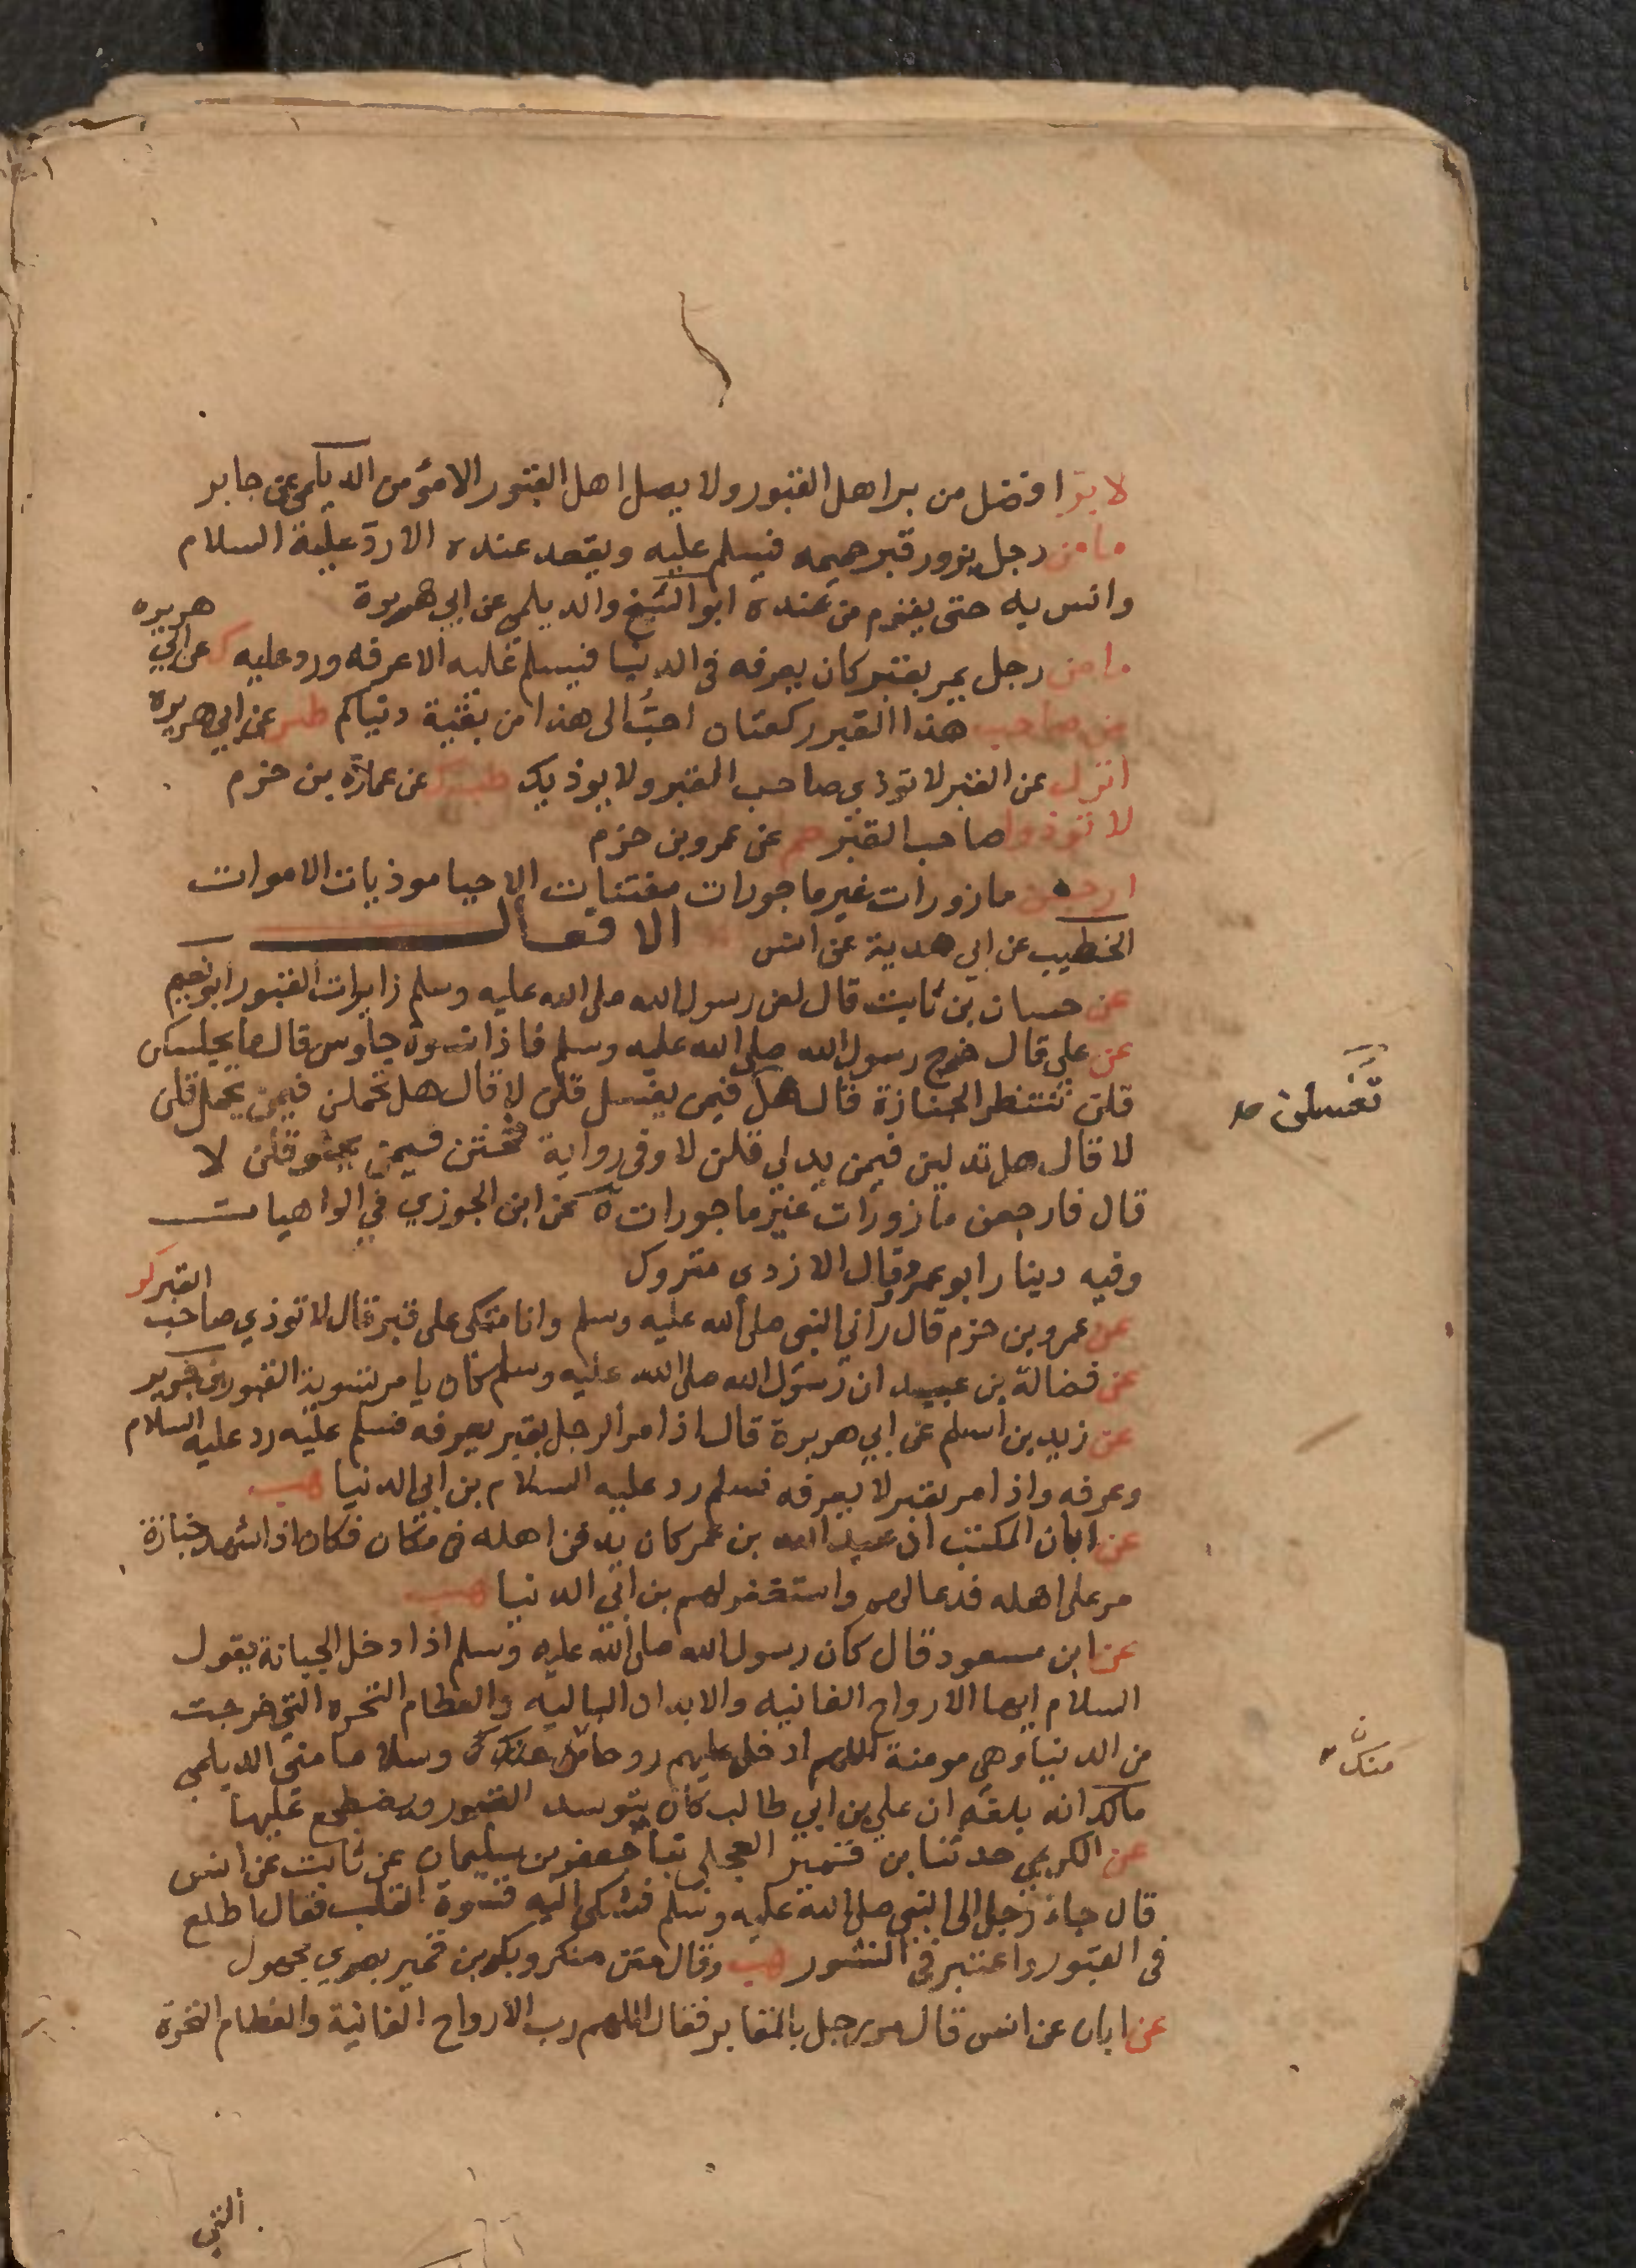 لا بر افضل من بر اهل القبور ولا يصل اهل القبور الا مؤمن الديلمي عن جابر
ما من رجل يزور قبر حميمه فيسلم عليه ويقعد عنده الا رد عليه السلام
وانس به حتى يقوم من عنده ابو الشيخ والديلمي عن ابي هريرة
ما من رجل يمر بقبر كان يعرفه في الدنيا فيسلم عليه الا عرفه ورد عليه كر عن ابي هريره
من صاحب هذا القبر ركعتان احب الى هذا من بقية دنياكم طس عن ابي هريره
انزل عن القبر لا توذي صاحب القبر ولا يوذيك طب ك عن عمارة بن حزم
لا توذوا صاحب القبر حم عن عمرو بن حزم
ارجعن مازورات غير ماجورات مفتنات الاحيا موذيات الاموات
الخطيب عن ابي هدبة عن انس الافعال
عن حسان بن ثابت قال لعن رسول الله صلى الله عليه وسلم زايرات القبور ابو نعيم
عن علي قال خرج رسول الله صلى الله عليه وسلم فاذا نسوة جلوس قال ما يجلسكن
قلن ننتظر الجنازة قال هل فيمن يغسل قلن لا قال هل تحملن فيمن يحمل قلن
تغسلن صح
لا قال هل تدلين فيمن يدلي قلن لا وفي رواية فتحثين فيمن يحثو قلن لا
قال فارجعن مازورات غير ماجورات ه عن ابن الجوزي في الواهيات
وفيه دينار ابو عمرو قال الازدي متروك
عن عمرو بن حزم قال راني النبي صلى الله عليه وسلم وانا متكى على قبر قال لا توذي صاحب القبر كر
عن فضالة بن عبيد ان رسول الله صلى الله عليه وسلم كان يامر بتسوية القبور ابن جرير
عن زيد بن اسلم عن ابي هريرة قال اذا مر الرجل بقبر يعرفه فسلم عليه رد عليه السلام
وعرفه واذا مر بقبر لا يعرفه فسلم رد عليه السلام بن ابي الدنيا هب
عن ابان المكتب ان عبد الله بن عمر كان يدفن اهله في مكان فكان اذا شهد جنازة
مر على اهله فدعا لهم واستغفر لهم بن ابي الدنيا هب
عن ابن مسعود قال كان رسول الله صلى الله عليه وسلم اذا دخل الجبانة يقول
السلام ايها الارواح الفانيه والابدان الباليه والعظام النخره التي خرجت
من الدنيا وهي مومنة اللهم ادخل عليهم روحا منك وسلاما مني الديلمي
منك
مالك انه بلغه ان علي بن ابي طالب كان يتوسد القبور ويضطجع عليها
عن الكريمي حدثنا بن قمير العجلي ثنا جعفر بن سليمان عن ثابت عن انس
قال جاء رجل الى النبي صلى الله عليه وسلم فشكى اليه قسوة القلب فقال اطلع
في القبور واعتبر في النشور هب وقال متن منكر وبكر بن قمير بصري مجهول
عن ابان عن انس قال مر رجل بالمقابر فقال اللهم رب الارواح الفانية والعظام النخرة
التي